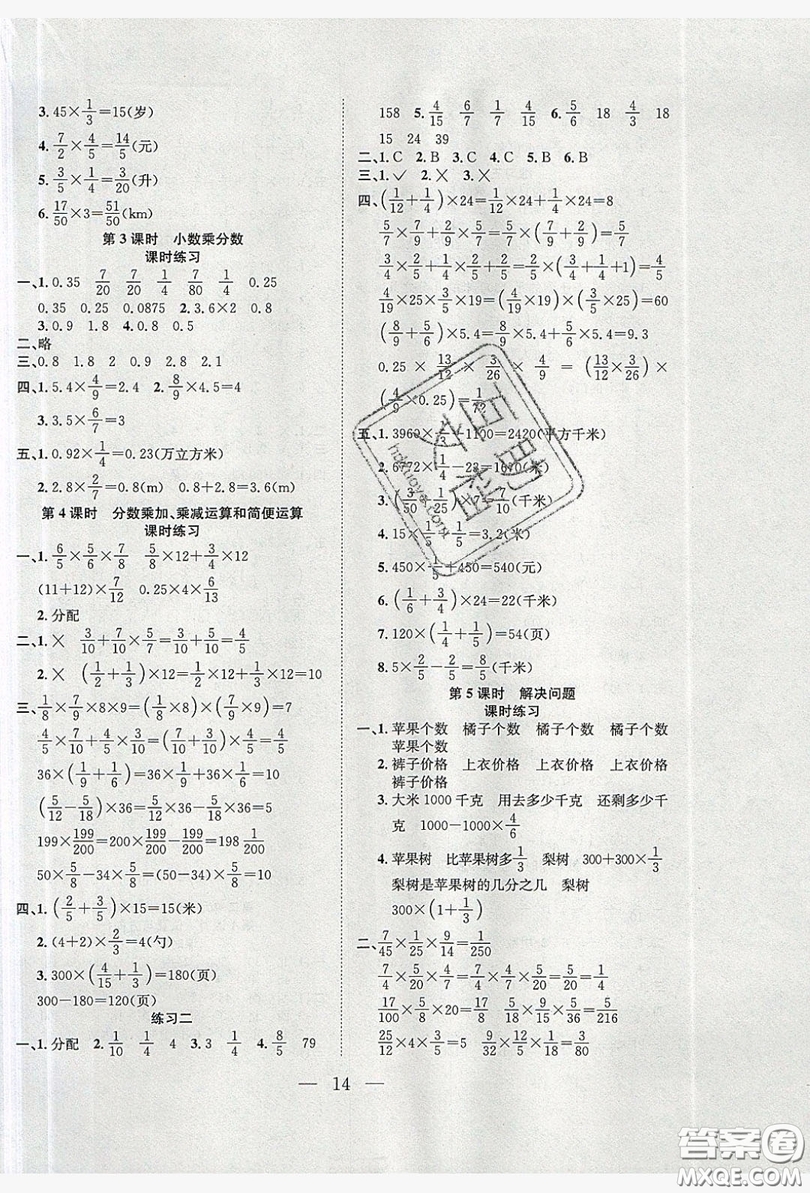 3. 45×1/3=15(岁)
4. 7/2×4/5=14/5(元)
5. 3/5×1/4=3/20(升)
6. 17/50×3=51/50(km)
第3课时 小数乘分数
课时练习
一、1. 0.35 7/20 7/20 1/4 7/80 1/4 0.25
0.35 0.25 0.0875 2. 3.6×2 0.8
3. 0.9 1.8 4. 0.8 0.5
二、略
三、0.8 1.8 2 0.9 2.8 2.1
四、1. 5.4×4/9=2.4 2. 8/9×4.5=4
3. 3.5×6/7=3
五、1. 0.92×1/4=0.23(万立方米)
2. 2.8×2/7=0.8(m) 0.8+2.8=3.6(m)
第4课时 分数乘加、乘减运算和简便运算
课时练习
一、1. 6/5×5/7×7/8 5/8×12+3/4×12
(11+12)×7/12 0.25×4×6/7
2. 分配
二、1. × 3/10+7/10×5/7=3/10+5/10=4/5
2. × (1/2+1/3)×12=1/2×12+1/3×12=10
三、1/7×1/9×8×9=(1/7×8)×(1/9×9)=8/7
4/5×3/10+4/5×7/10=(3/10+7/10)×4/5=4/5
36×(1/9+1/4)=36×1/9+36×1/4=13
(5/12−5/18)×36=5/12×36−5/18×36=5
199×199/200=200×199/200−199/200=198 1/200
50×5/8−34×5/8=(50−34)×5/8=10
四、1. (2/5+3/5)×15=15(米)
2. (4+2)×2/3=4(勺)
3. 300×(4/15+1/3)=180(页)
300−180=120(页)
练习二
一、1. 分配 2. 1/10 1/4 4 3. 3 1/4 4. 8/5 79
158 5. 4/15 6/7 1/7 4/15 6. 5/6 18 4/3 18
15 24 39
二、1. C 2. B 3. B 4. C 5. B 6. B
三、1. ✓ 2. × 3. ×
四、(1/12+1/4)×24=1/12×24+1/4×24=8
5/7×7/9+5/7×2/9=5/7×(7/9+2/9)=5/7
3/4×1/4+2/4×3/4+3/4=3/4×(1/4+2/4+1)=21/16
4/19×25×19×3/5=(4/19×19)×(3/5×25)=60
(8/9+5/6)×5.4=8/9×5.4+5/6×5.4=9.3
0.25×13/12×3/26×4/9=(13/12×3/26)
×(4/9×0.25)=1/72
五、1. 3960×
−1100=2420(平方千米)
2. 6672×1/4−
(米)
3.
7/10(千米)
4. 15×1/5=3.2(米)
5. 450×1/5+450=540(元)
6. (1/6+3/4)×24=22(千米)
7. 120×(1/4+1/5)=54(页)
8. 5×2/5−2/5=8/5(千米)
第5课时 解决问题
课时练习
一、1. 苹果个数 橘子个数 橘子个数 橘子个数
苹果个数
2. 裤子价格 上衣价格 上衣价格 上衣价格
裤子价格
3. 大米1000千克 用去多少千克 还剩多少千
克 1000−1000×4/6
4. 苹果树 比苹果树多1/3 梨树 300+300×1/3
梨树是苹果树的几分之几 梨树
300×(1+1/3)
二、7/45×1/25×9/14=1/250
4/15×5/7+11/15×5/7=5/7 3/8×8/9×3/4=1/4
17/100×5/8×8/17=1/20 5/9×1/4×1/6=5/216
25/12×4×3/5=5 9/32×12/15×5/9=1/8
14
答案圈
MXQE.COM